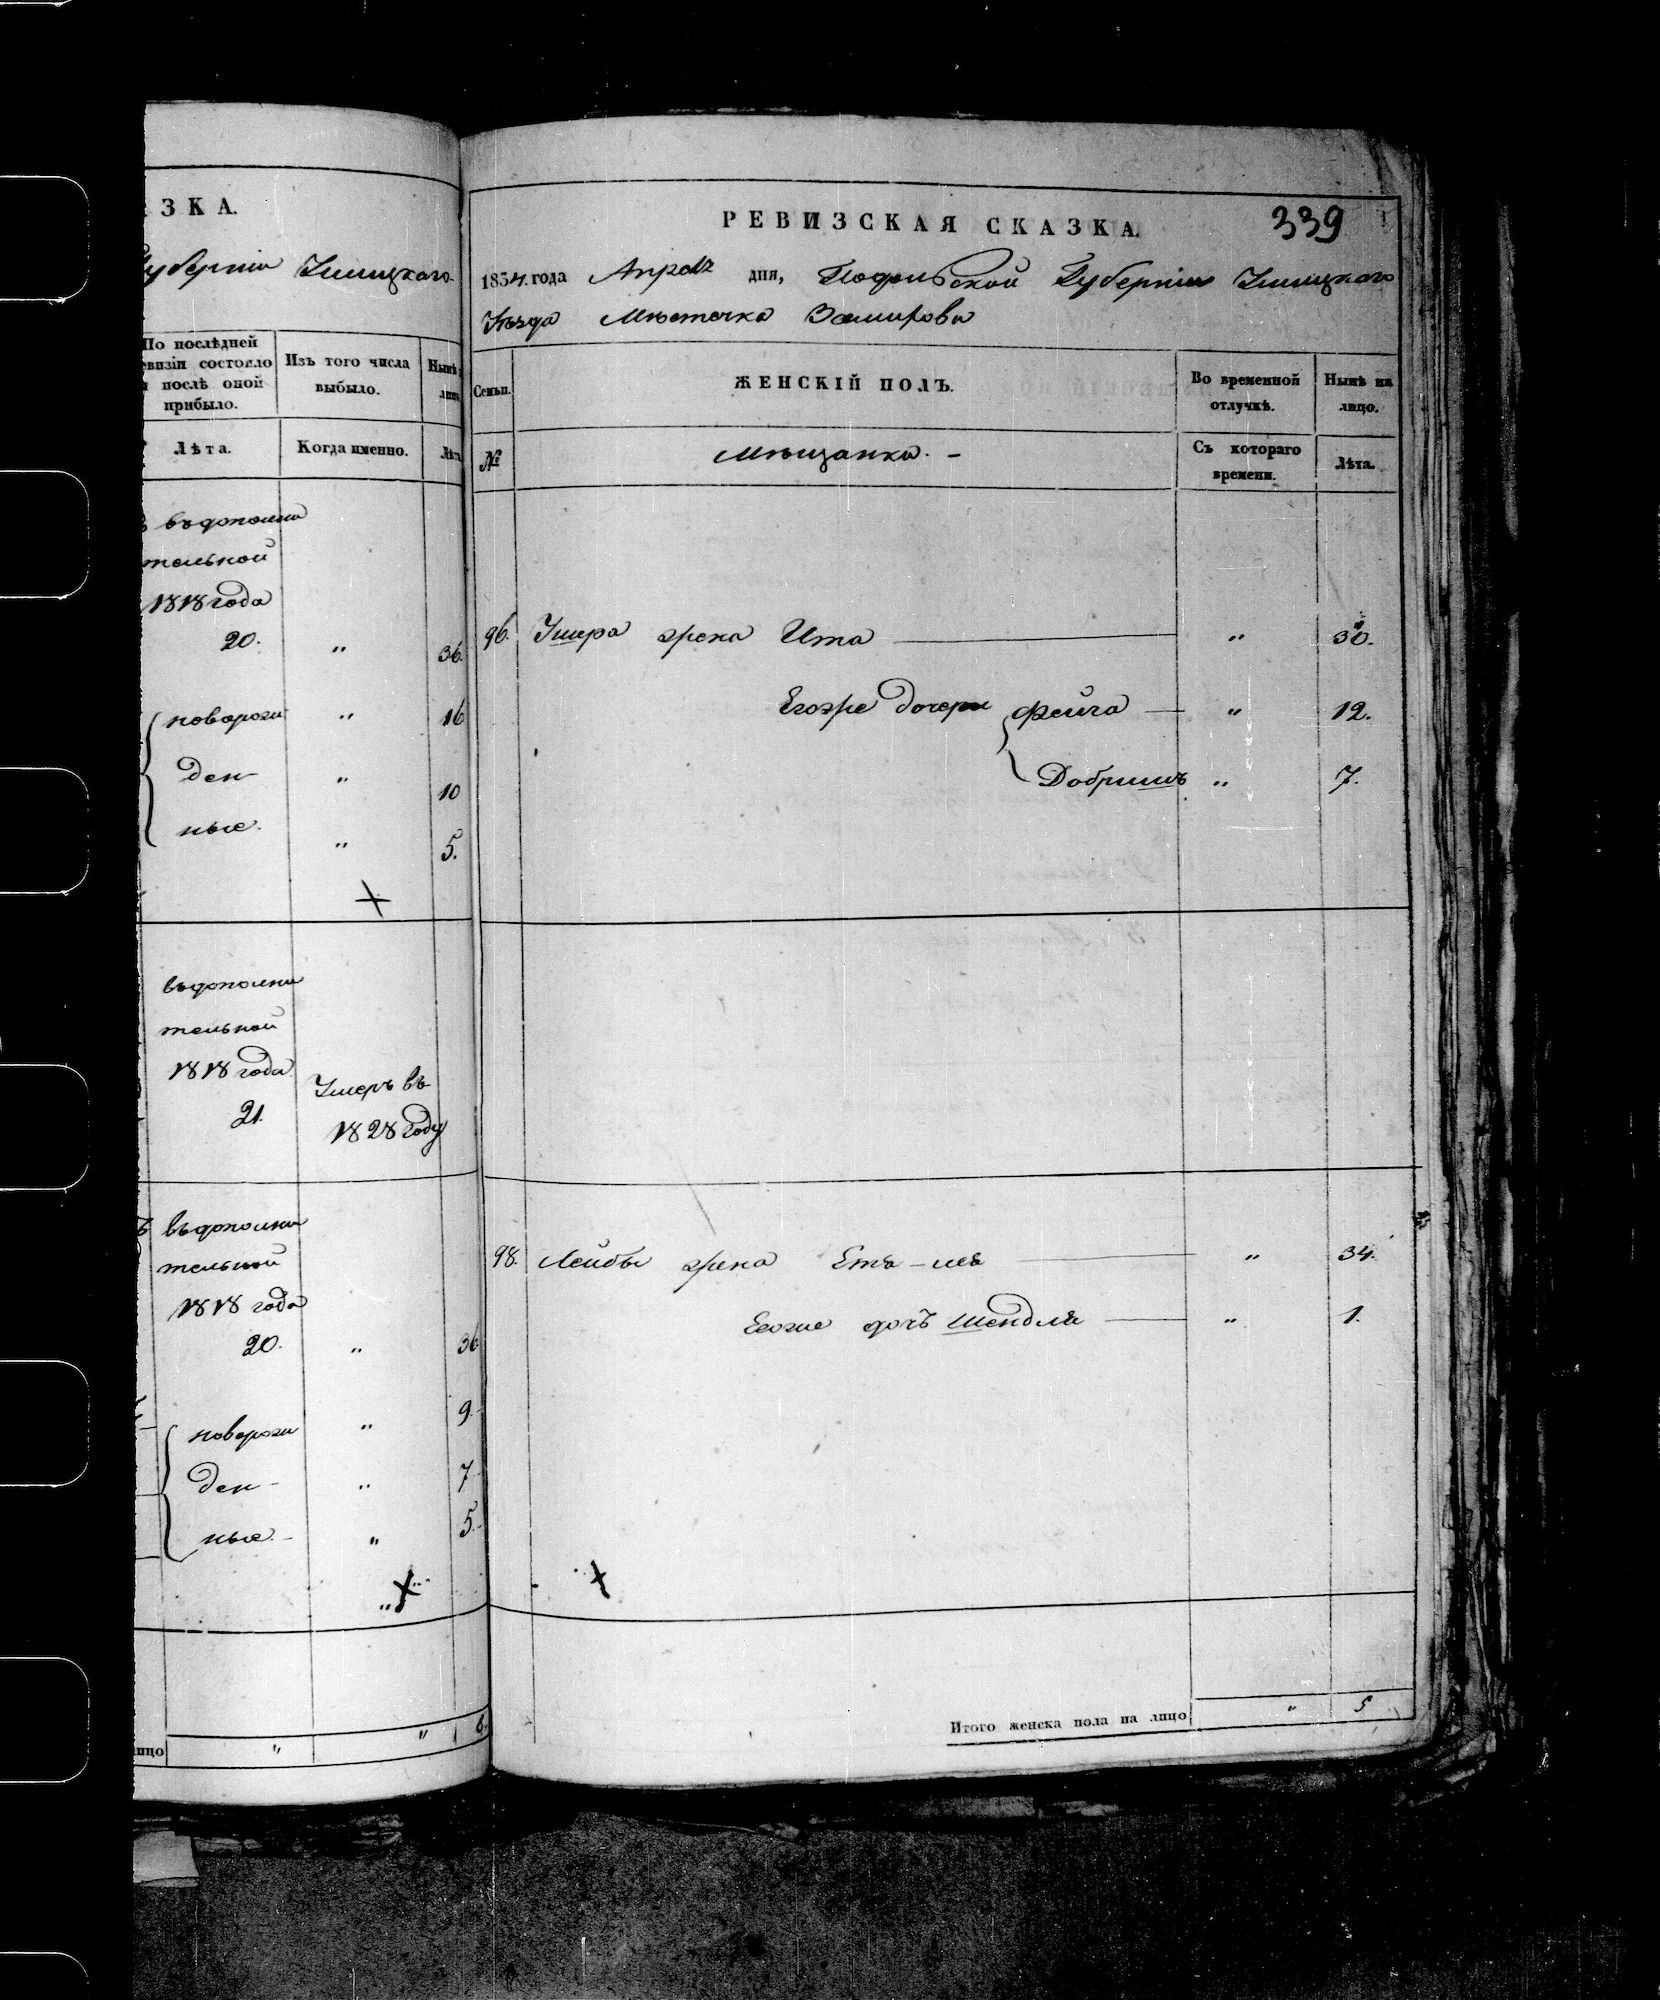 ЗКА.
Губерніи Ушицкаго
По послѣдней
ревизіи состояло
и послѣ оной
прибыло.
Изъ того числа
выбыло.
Нынѣ
лицо
Лѣта.
Когда именно.
Лѣта
въ дополни
тельной
1818 года
20. „ 36.
новорож „ 16
ден „ 10
ные. „ 5.
въ дополни
тельной
1818 года
21.
Умеръ въ
1828 году
въ дополни
тельной
1818 года
20. „ 36
новорож „ 9.
ден „ 7
ные. „ 5.
лицо „ „ 6.
РЕВИЗСКАЯ СКАЗКА.
339
1834. года Апреля дня, Подольской Губерніи Ушицкаго
Уѣзда Мѣстечка Замирова
Семьи.
ЖЕНСКІЙ ПОЛЪ.
Во временной
отлучкѣ.
Нынѣ на
лицо.
№
Мѣщанки.
Съ котораго
времени.
Лѣта.
96. Умера жена Ита „ 30.
Егоже дочери Фейга „ 12.
Добришъ „ 7.
98. Лейбы жена Еть-леа „ 34.
Егоже дочъ Шендля „ 1.
Итого женска пола на лицо „ 5